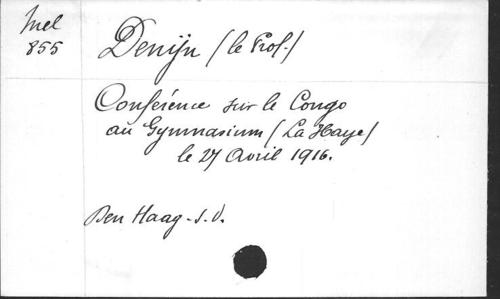 Mel
855
Denijn (le Prof.)
Conférence sur le Congo
au Gymnasium (La Haye)
le 27 Avril 1916.
Den Haag - s.d.